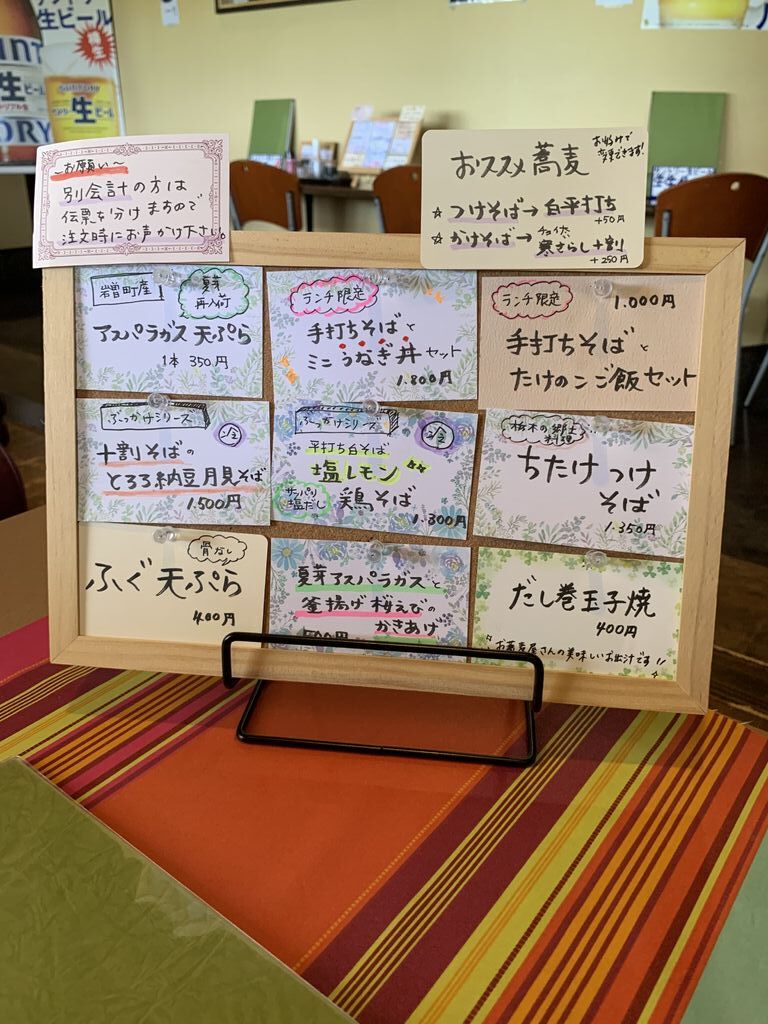 生ビール
生
～お願い～
別会計の方は
伝票を分けますので
注文時にお声がけ下さい。
おススメ蕎麦
☆つけそば→白平打ち
+50円
☆かけそば→寒ざらし十割
+250円
夏芽
再入荷
アスパラガス天ぷら
1本 350円
ランチ限定
手打ちそばと
ミニうなぎ丼セット
1.800円
ランチ限定
1.000円
手打ちそばと
たけのこご飯セット
ぶっかけシリーズ
十割そばの
とろろ納豆月見そば
1.500円
ぶっかけシリーズ
平打ち白そば
塩レモン
サッパリ
塩だし
鶏そば
1.300円
栃木の郷土
料理
ちたけつけ
そば
1.350円
骨なし
ふぐ天ぷら
400円
夏芽アスパラガスと
釜揚げ桜えびの
かきあげ
だし巻玉子焼
400円
お蕎麦屋さんの美味しいお出汁です!!